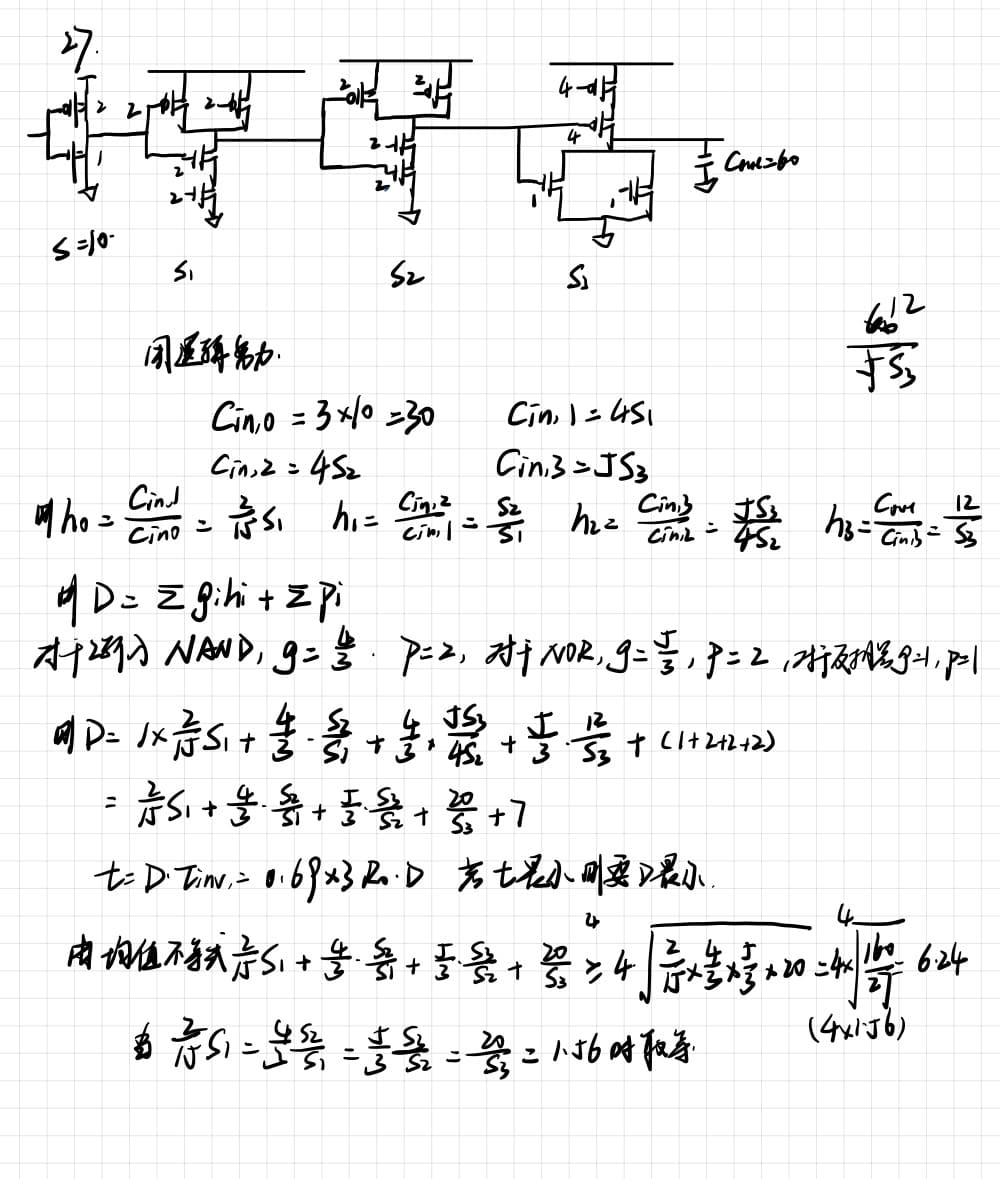 27.
2 2 2-
2 2
4
2 2 4
1 2 2 1 1 Cout=60
2- 2
S=10
S₁ S₂ S₃
60 12 / 5S₃
用逻辑努力.
Cin,0 = 3×10 = 30 Cin,1 = 4S₁
Cin,2 = 4S₂ Cin,3 = 5S₃
则 h₀ = Cin,1/Cin0 = 2/15 S₁ h₁ = Cin,2/Cin,1 = S₂/S₁ h₂ = Cin,3/Cin,2 = 5S₃/4S₂ h₃ = Cout/Cin,3 = 12/S₃
则 D = Σ gihi + Σ pi
对于2输入 NAND, g = 4/3 . P=2, 对于 NOR, g = 5/3, p = 2, 对于反相器 g=1, p=1
则 D = 1×2/15 S₁ + 4/3 · S₂/S₁ + 4/3 × 5S₃/4S₂ + 5/3 · 12/S₃ + (1+2+2+2)
= 2/15 S₁ + 4/3 · S₂/S₁ + 5/3 · S₃/S₂ + 20/S₃ + 7
t = D·τinv = 0.69×3R₀·D 若 t 最小则要D最小.
由均值不等式 2/15 S₁ + 4/3 · S₂/S₁ + 5/3 · S₃/S₂ + 20/S₃ ≥ 4 ⁴√(2/15 × 4/3 × 5/3 × 20) = 4× ⁴√(160/27) = 6.24
(4×1.56)
当 2/15 S₁ = 4/3 S₂/S₁ = 5/3 S₃/S₂ = 20/S₃ = 1.56 时取等.